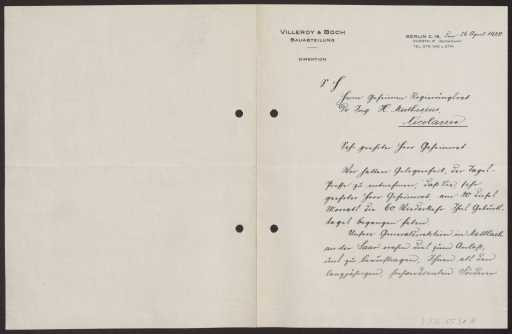 VILLEROY & BOCH
BAUABTEILUNG
DIREKTION
BERLIN C. 19, den 26 April 1921
Herrn Geheimen Regierungsrat
Dr Ing H. Muthesius
Nicolassee
Sehr geehrter Herr Geheimrat
Wir hatten Gelegenheit, der Tages-
Presse zu entnehmen, daß Sie, sehr
geehrter Herr Geheimrat, am 20 dieses
Monats die 60 Wiederkehr Ihres Geburts-
tages begangen haben.
Unsere Generaldirektion in Mettlach
an der Saar nahm dies zum Anlaß,
uns zu beauftragen, Ihnen als dem
langjährigen, Förderer